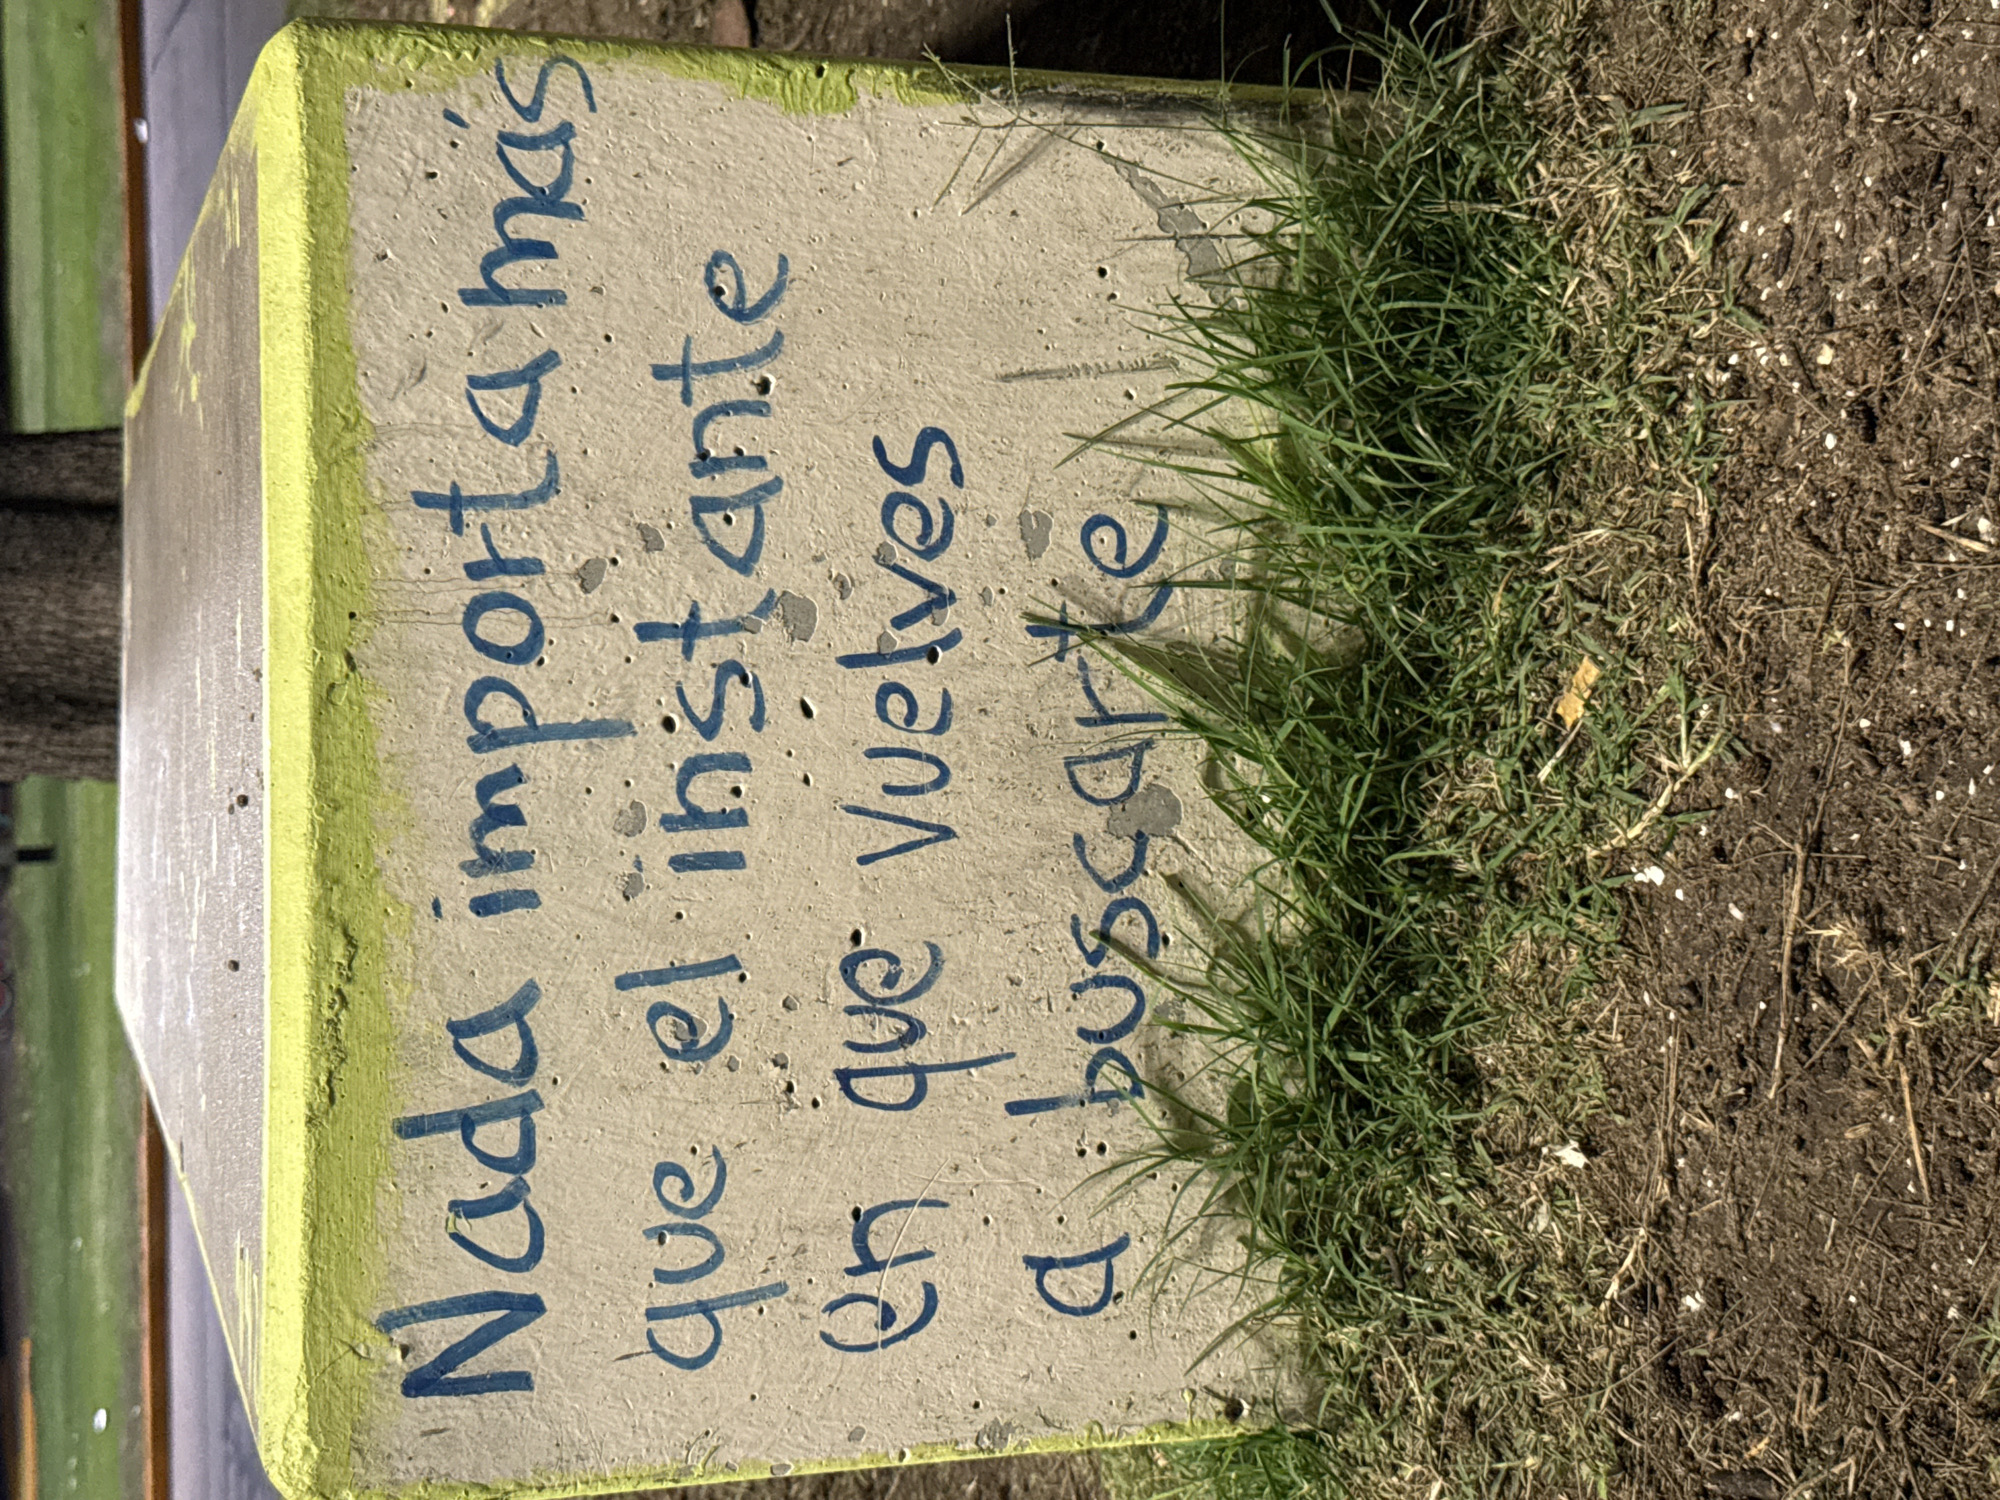 Nada importa más
que el instante
en que vuelves
a buscarte